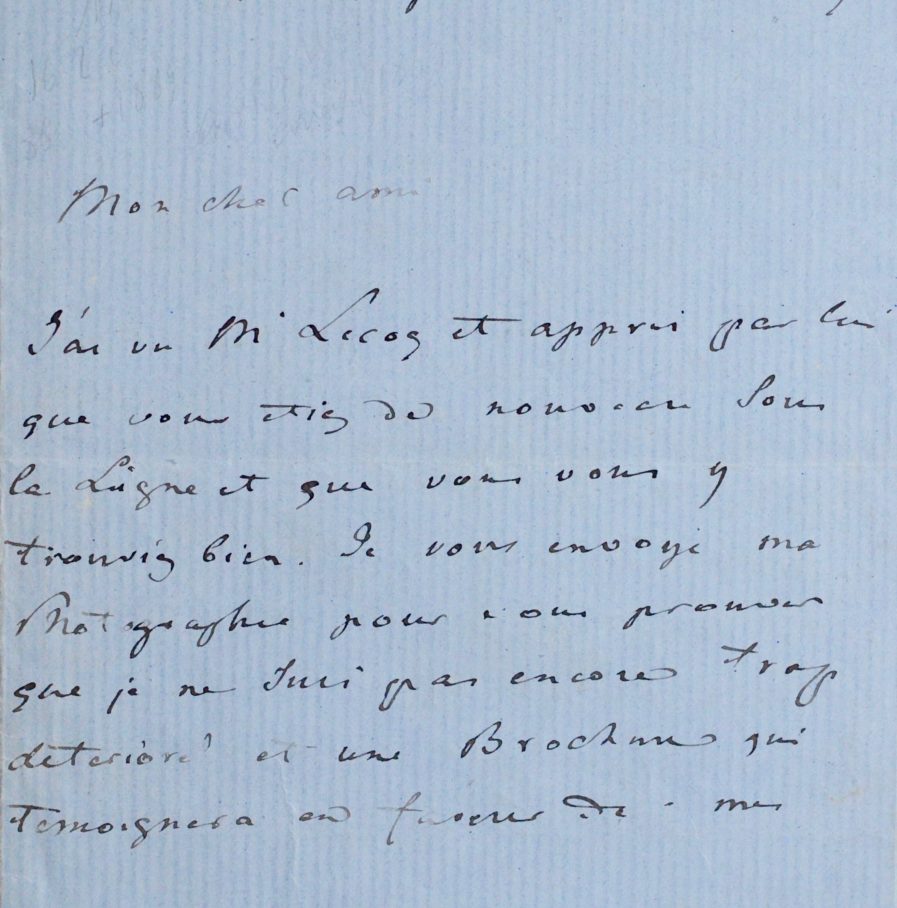 Mon cher ami
J'ai vu Mr Lecoq et appris par lui
que vous etiez de nouveau sous
la Ligne et que vous vous y
trouviez bien. Je vous envoye ma
Photographie pour vous prouver
que je ne suis pas encore trop
deterioré et une Brochure qui
temoignera en faveur de mes